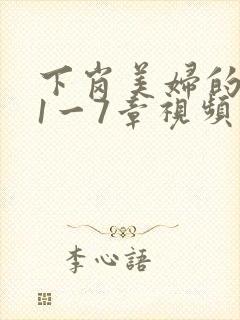 下岗美婦的
1一7章視頻
李心語